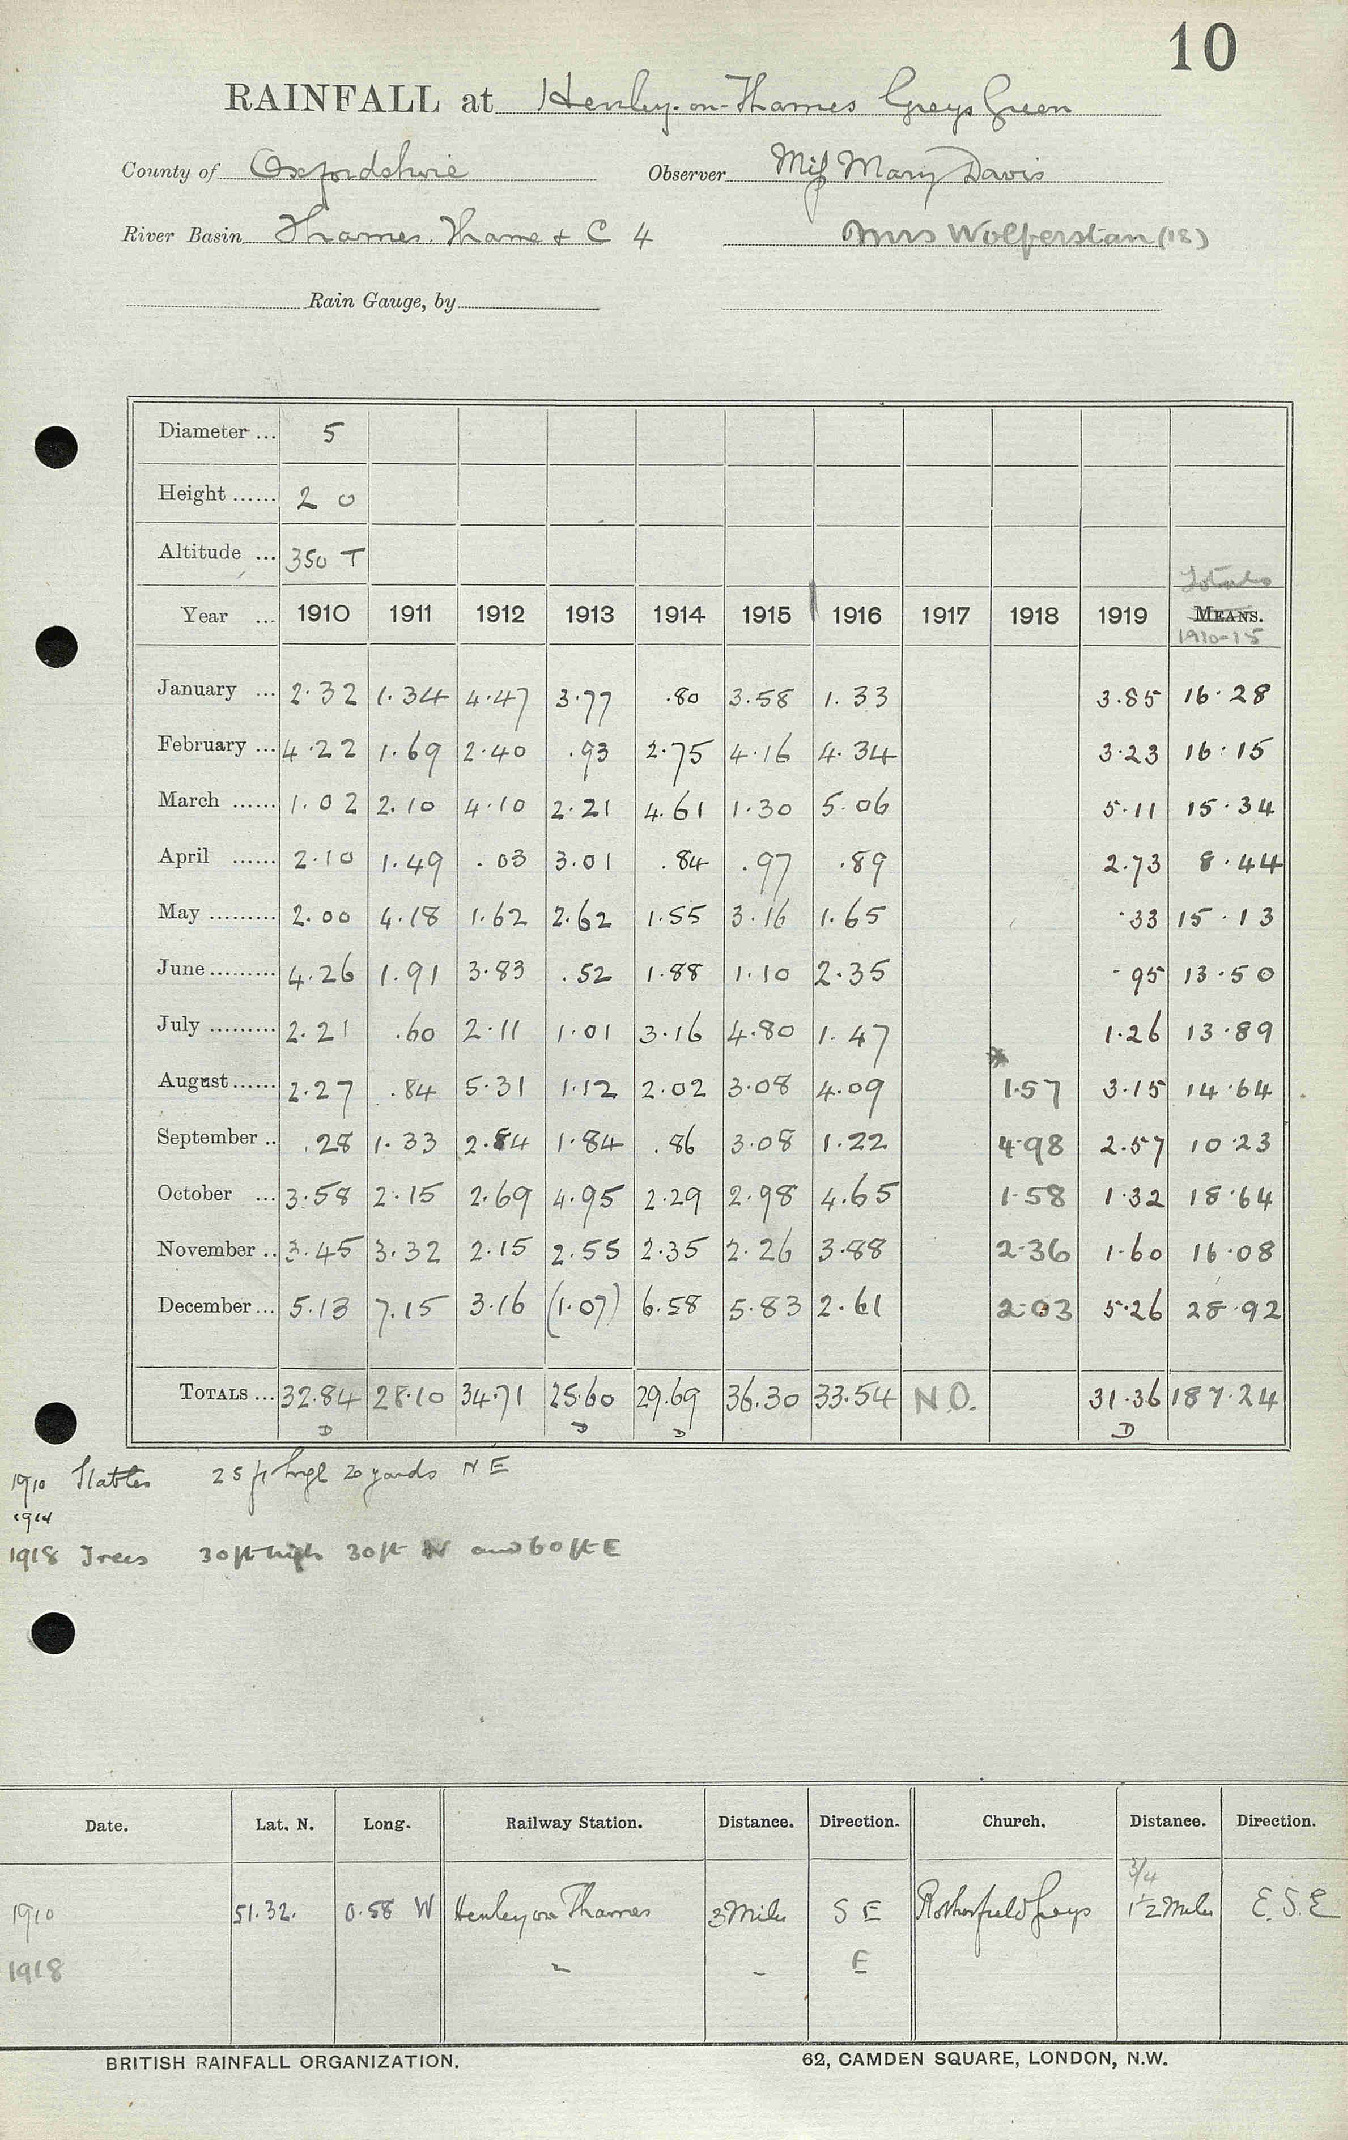 10
RAINFALL at Henley-on-Thames Greys Green
County of Oxfordshire Observer Miss Mary Davis
River Basin Thames. Thame & C 4 Mrs Wolferstan (18)
Rain Gauge, by
Diameter ... 5
Height ...... 2 0
Altitude ... 350 T
Totals
Year ... 1910 1911 1912 1913 1914 1915 1916 1917 1918 1919 MEANS.
1910-15
January ... 2.32 1.34 4.47 3.77 .80 3.58 1.33 3.85 16.28
February ... 4.22 1.69 2.40 .93 2.75 4.16 4.34 3.23 16.15
March ...... 1.02 2.10 4.10 2.21 4.61 1.30 5.06 5.11 15.34
April ...... 2.10 1.49 .03 3.01 .84 .97 .89 2.73 8.44
May ......... 2.00 4.18 1.62 2.62 1.55 3.16 1.65 .33 15.13
June ......... 4.26 1.91 3.83 .52 1.88 1.10 2.35 .95 13.50
July ......... 2.21 .60 2.11 1.01 3.16 4.80 1.47 1.26 13.89
August ...... 2.27 .84 5.31 1.12 2.02 3.08 4.09 * 1.57 3.15 14.64
September .. .28 1.33 2.84 1.84 .86 3.08 1.22 4.98 2.57 10.23
October ... 3.58 2.15 2.69 4.95 2.29 2.98 4.65 1.58 1.32 18.64
November .. 3.45 3.32 2.15 2.55 2.35 2.26 3.88 2.36 1.60 16.08
December ... 5.13 7.15 3.16 (1.07) 6.58 5.83 2.61 2.03 5.26 28.92
TOTALS ... 32.84 28.10 34.71 25.60 29.69 36.30 33.54 N.O. 31.36 187.24
D D D D
1910 Stables 25 ft high 20 yards N E
1914
1918 Trees 30 ft high 30 ft N and 60 ft E
Date. Lat. N. Long. Railway Station. Distance. Direction. Church. Distance. Direction.
3/4
1910 51.32. 0.58 W Henley on Thames 3 Miles S E Rotherfield Greys 1 1/2 Miles E.S.E
1918 " " E
BRITISH RAINFALL ORGANIZATION. 62, CAMDEN SQUARE, LONDON, N.W.